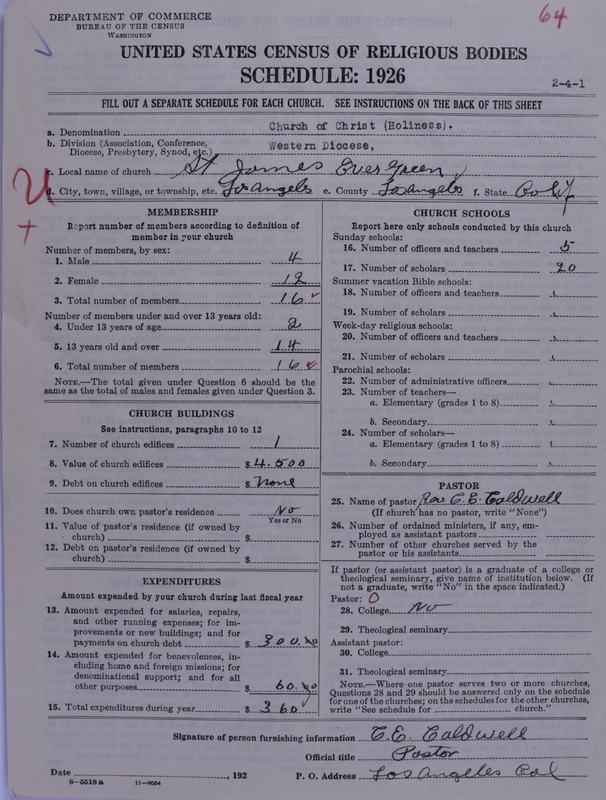 DEPARTMENT OF COMMERCE
BUREAU OF THE CENSUS
WASHINGTON
64
UNITED STATES CENSUS OF RELIGIOUS BODIES
SCHEDULE: 1926
2-4-1
FILL OUT A SEPARATE SCHEDULE FOR EACH CHURCH. SEE INSTRUCTIONS ON THE BACK OF THIS SHEET
a. Denomination Church of Christ (Holiness).
b. Division (Association, Conference, Diocese, Presbytery, Synod, etc.) Western Diocese,
c. Local name of church St James Ever Green
d. City, town, village, or township, etc. Los Angels e. County Los Angels f. State Calif
MEMBERSHIP
Report number of members according to definition of member in your church
Number of members, by sex:
1. Male 4
2. Female 12
3. Total number of members 16
Number of members under and over 13 years old:
4. Under 13 years of age 2
5. 13 years old and over 14
6. Total number of members 16
NOTE.—The total given under Question 6 should be the same as the total of males and females given under Question 3.
CHURCH BUILDINGS
See instructions, paragraphs 10 to 12
7. Number of church edifices 1
8. Value of church edifices $ 4.500
9. Debt on church edifices $ None
10. Does church own pastor's residence No
Yes or No
11. Value of pastor's residence (if owned by church) $
12. Debt on pastor's residence (if owned by church) $
EXPENDITURES
Amount expended by your church during last fiscal year
13. Amount expended for salaries, repairs, and other running expenses; for improvements or new buildings; and for payments on church debt $ 300.00
14. Amount expended for benevolences, including home and foreign missions; for denominational support; and for all other purposes $ 60.00
15. Total expenditures during year $ 360
CHURCH SCHOOLS
Report here only schools conducted by this church
Sunday schools:
16. Number of officers and teachers 5
17. Number of scholars 20
Summer vacation Bible schools:
18. Number of officers and teachers
19. Number of scholars
Week-day religious schools:
20. Number of officers and teachers
21. Number of scholars
Parochial schools:
22. Number of administrative officers
23. Number of teachers—
a. Elementary (grades 1 to 8)
b. Secondary
24. Number of scholars—
a. Elementary (grades 1 to 8)
b. Secondary
PASTOR
25. Name of pastor Rev. C.E. Caldwell
(If church has no pastor, write "None")
26. Number of ordained ministers, if any, employed as assistant pastors
27. Number of other churches served by the pastor or his assistants
If pastor (or assistant pastor) is a graduate of a college or theological seminary, give name of institution below. (If not a graduate, write "No" in the space indicated.)
Pastor: 0
28. College No
29. Theological seminary
Assistant pastor:
30. College
31. Theological seminary
NOTE.—Where one pastor serves two or more churches, Questions 28 and 29 should be answered only on the schedule for one of the churches; on the schedules for the other churches, write "See schedule for church."
Signature of person furnishing information C.E. Caldwell
Official title Pastor
Date , 192 P. O. Address Los Angeles Cal
8-5518a 11-9034